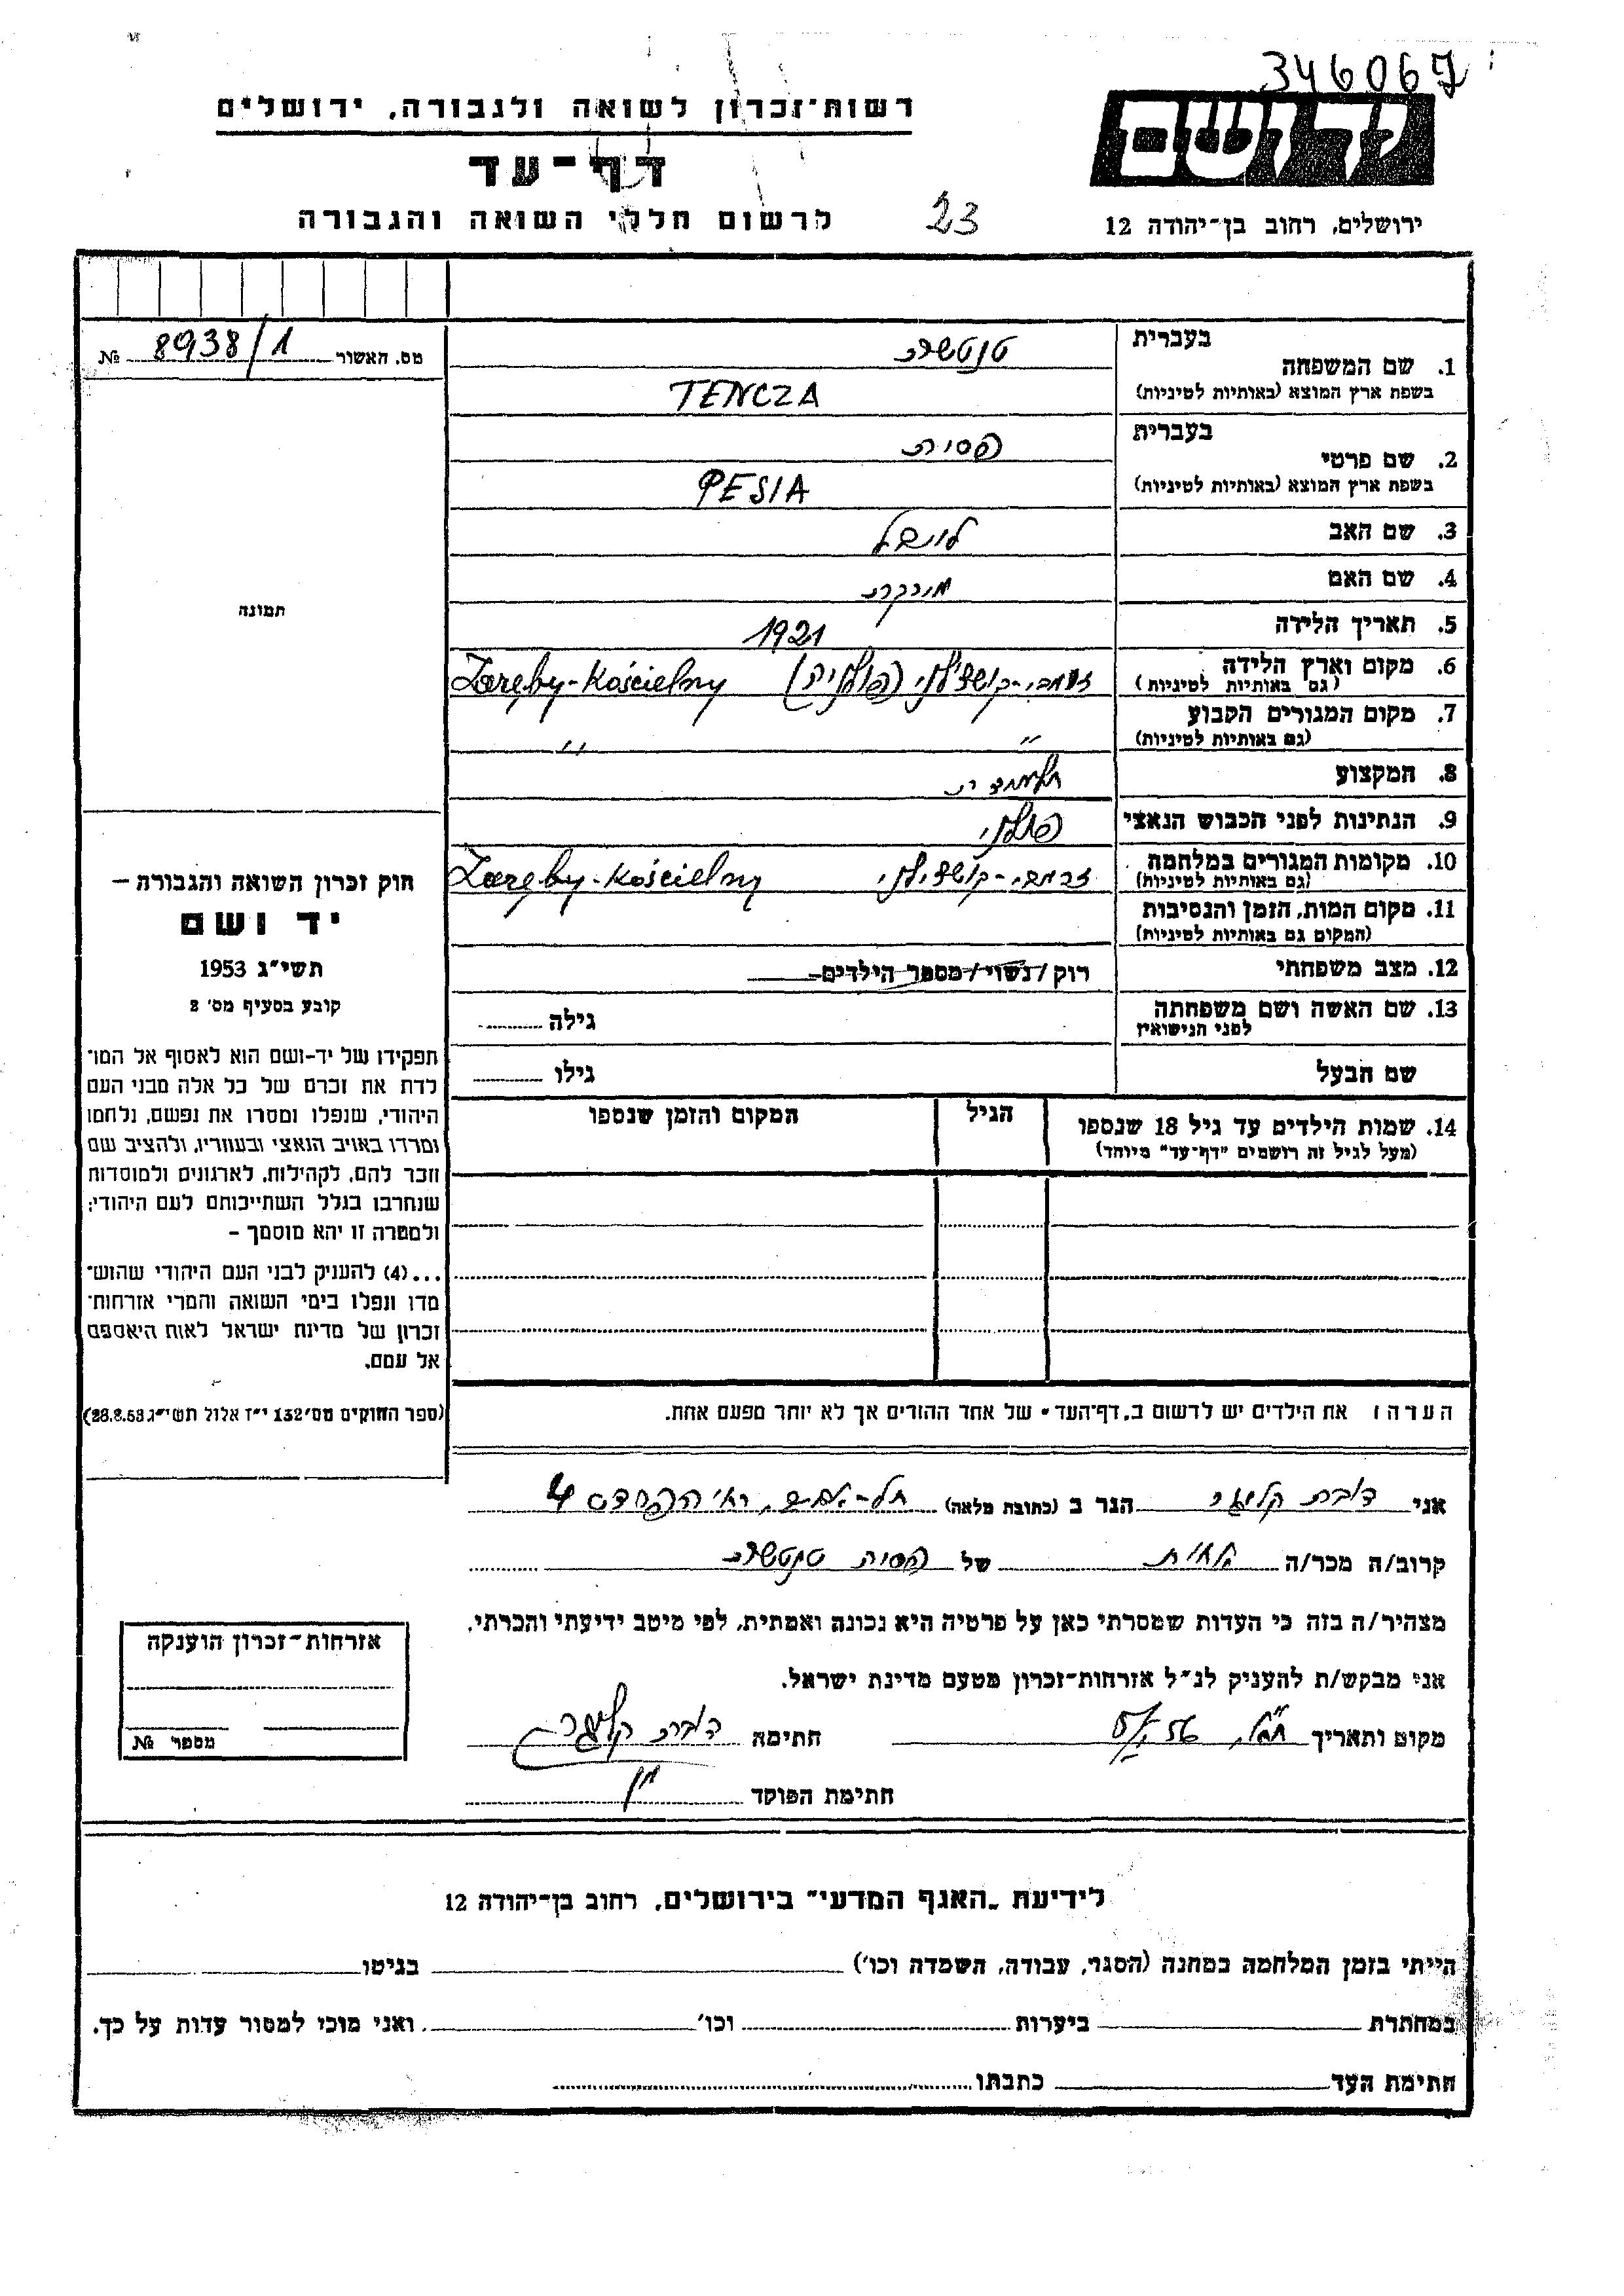 346067
רשות־זכרון לשואה ולגבורה, ירושלים
ידושם
דף־עד
לרשום חללי השואה והגבורה
23
ירושלים, רחוב בן־יהודה 12
מס. האשור 8938/1 №
תמונה
בעברית
1. שם המשפחה
בשפת ארץ המוצא (באותיות לטיניות)
TENCZA
בעברית
2. שם פרטי
בשפת ארץ המוצא (באותיות לטיניות)
פסיה
PESIA
3. שם האב
4. שם האם
5. תאריך הלידה 1921
6. מקום וארץ הלידה
(גם באותיות לטיניות)
(פולניה) Zaręby-Kościelny
7. מקום המגורים הקבוע
(גם באותיות לטיניות)
״ ״
8. המקצוע
תלמידה
9. הנתינות לפני הכבוש הנאצי
פולני
10. מקומות המגורים במלחמה
(גם באותיות לטיניות)
Zaręby-Kościelny
11. מקום המות, הזמן והנסיבות
(המקום גם באותיות לטיניות)
12. מצב משפחתי רוק/נשוי/מספר הילדים
13. שם האשה ושם משפחתה
לפני הנישואין
גילה
שם הבעל גילו
14. שמות הילדים עד גיל 18 שנספו
(מעל לגיל זה רושמים "דף־עד" מיוחד)
הגיל
המקום והזמן שנספו
הערה: את הילדים יש לרשום ב„דף־העד" של אחד ההורים אך לא יותר מפעם אחת.
חוק זכרון השואה והגבורה –
יד ושם
תשי״ג 1953
קובע בסעיף מס׳ 2
תפקידו של יד-ושם הוא לאסוף אל המו־
לדת את זכרם של כל אלה מבני העם
היהודי, שנפלו ומסרו את נפשם, נלחמו
ומרדו באויב הנאצי ובעוזריו, ולהציב שם
וזכר להם, לקהילות, לארגונים ולמוסדות
שנחרבו בגלל השתייכותם לעם היהודי;
ולמטרה זו יהא מוסמך –
...(4) להעניק לבני העם היהודי שהוש־
מדו ונפלו בימי השואה והמרי אזרחות־
זכרון של מדינת ישראל לאות היאספם
אל עמם.
(ספר החוקים מס׳ 132 י״ז אלול תשי״ג 28.8.53)
אני הגר ב (כתובת מלאה) 4
קרוב/ה מכר/ה של פסיה
מצהיר/ה בזה כי העדות שמסרתי כאן על פרטיה היא נכונה ואמתית, לפי מיטב ידיעתי והכרתי.
אני מבקש/ת להעניק לנ״ל אזרחות־זכרון מטעם מדינת ישראל.
מקום ותאריך חתימה
חתימת הפוקד
אזרחות־זכרון הוענקה
מספר №
לידיעת „האגף המדעי" בירושלים, רחוב בן־יהודה 12
הייתי בזמן המלחמה במחנה (הסגר, עבודה, השמדה וכו׳) בגיטו
במחתרת ביערות וכו׳ ואני מוכן למסור עדות על כך.
חתימת העד כתבתו